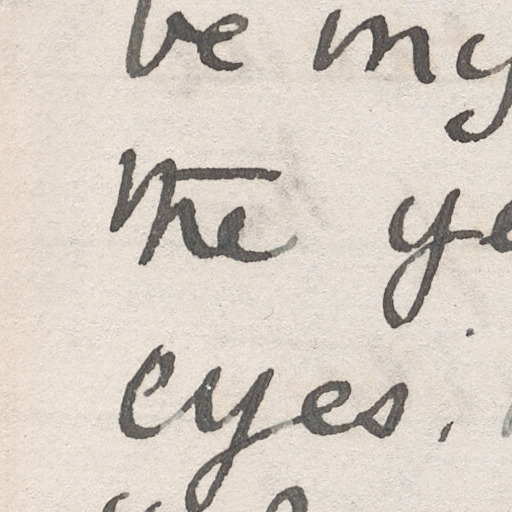 be my
the ye
eyes.